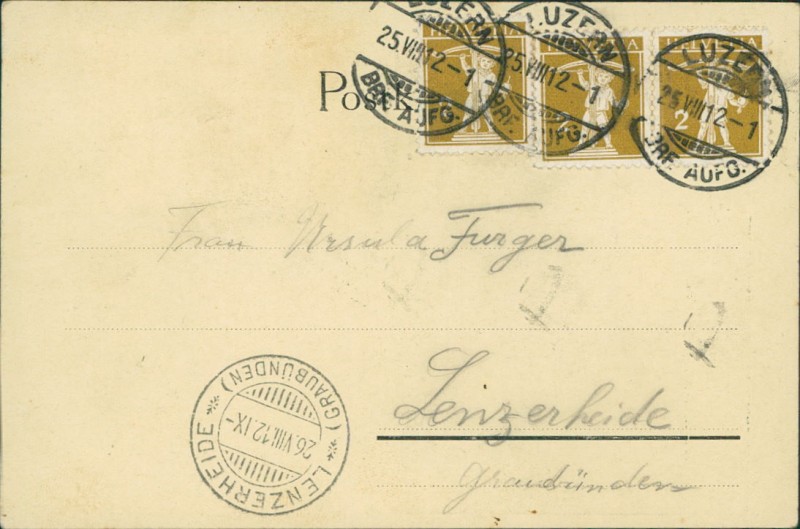 LUZERN LUZERN LUZERN
HELVETIA
25.VIII.12-1 25.VIII.12-1 25.VIII.12-1
2 2 2
BRF. AUFG. BRF. AUFG. BRF. AUFG.
Postk
Frau Ursula Furger
Lenzerheide
Graubünden
(GRAUBÜNDEN)
26.VIII.12.IX-
LENZERHEIDE